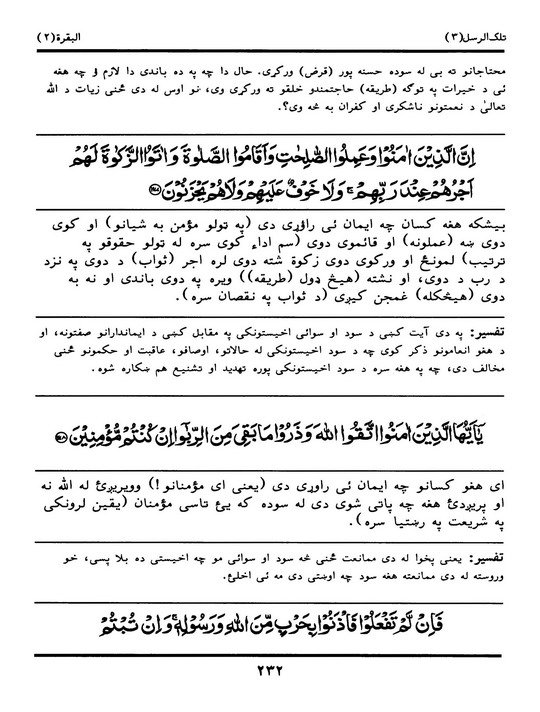 تلك الرسل(٣)
البقرة(٢)
محتاجانو ته بی له سوده حسنه پور (قرض) ورکړی. حال دا چه په ده باندی دا لازم ؤ چه هغه
ئی د خیرات په توګه (طریقه) حاجتمندو خلقو ته ورکړی وی، نو اوس له دی څخه زیات د الله
تعالیٰ د نعمتونو ناشکری او کفران به څه وی؟.
اِنَّ الَّذِيْنَ اٰمَنُوْا وَعَمِلُوا الصّٰلِحٰتِ وَاَقَامُوا الصَّلٰوةَ وَاٰتَوُا الزَّكٰوةَ لَهُمْ
اَجْرُهُمْ عِنْدَ رَبِّهِمْ ۚ وَلَا خَوْفٌ عَلَيْهِمْ وَلَا هُمْ يَحْزَنُوْنَ
بیشکه هغه کسان چه ایمان ئی راؤړی دی (په ټولو مؤمن به شیانو) او کوی
دوی ښه (عملونه) او قائموی دوی (سم اداء کوی سره له ټولو حقوقو په
ترتیب) لمونځ او ورکوی دوی زکوة شته دوی لره اجر (ثواب) د دوی په نزد
د رب د دوی، او نشته (هیڅ ډول (طریقه)) ویره په دوی باندی او نه به
دوی (هیڅکله) غمجن کیږی (د ثواب په نقصان سره).
تفسیر: په دی آیت کښی د سود او سوائی اخیستونکی په مقابل کښی د ایماندارانو صفتونه، او
د هغو انعامونو ذکر کوی چه د سود اخیستونکی له حالاتو، اوصافو، عاقبت او حکمونو څخنی
مخالف دی، چه په هغه سره د سود اخیستونکی پوره تهدید او تشنیع هم ښکاره شوه.
يٰٓاَيُّهَا الَّذِيْنَ اٰمَنُوا اتَّقُوا اللّٰهَ وَذَرُوْا مَا بَقِيَ مِنَ الرِّبٰٓوا اِنْ كُنْتُمْ مُّؤْمِنِيْنَ
ای هغو کسانو چه ایمان ئی راوړی دی (یعنی ای مؤمنانو!) وویریږئ له الله نه
او پریږدئ هغه چه پاتی شوی دی له سوده که یئ تاسی مؤمنان (یقین لرونکی
په شریعت په رښتیا سره).
تفسیر: یعنی پخوا له دی ممانعت څخنی څه سود او سوائی مو چه اخیستی ده بلا پسی، خو
وروسته له دی ممانعته هغه سود چه اوښتی دی مه ئی اخلئ.
فَاِنْ لَّمْ تَفْعَلُوْا فَاْذَنُوْا بِحَرْبٍ مِّنَ اللّٰهِ وَرَسُوْلِهٖ ۚ وَاِنْ تُبْتُمْ
٢٣٢